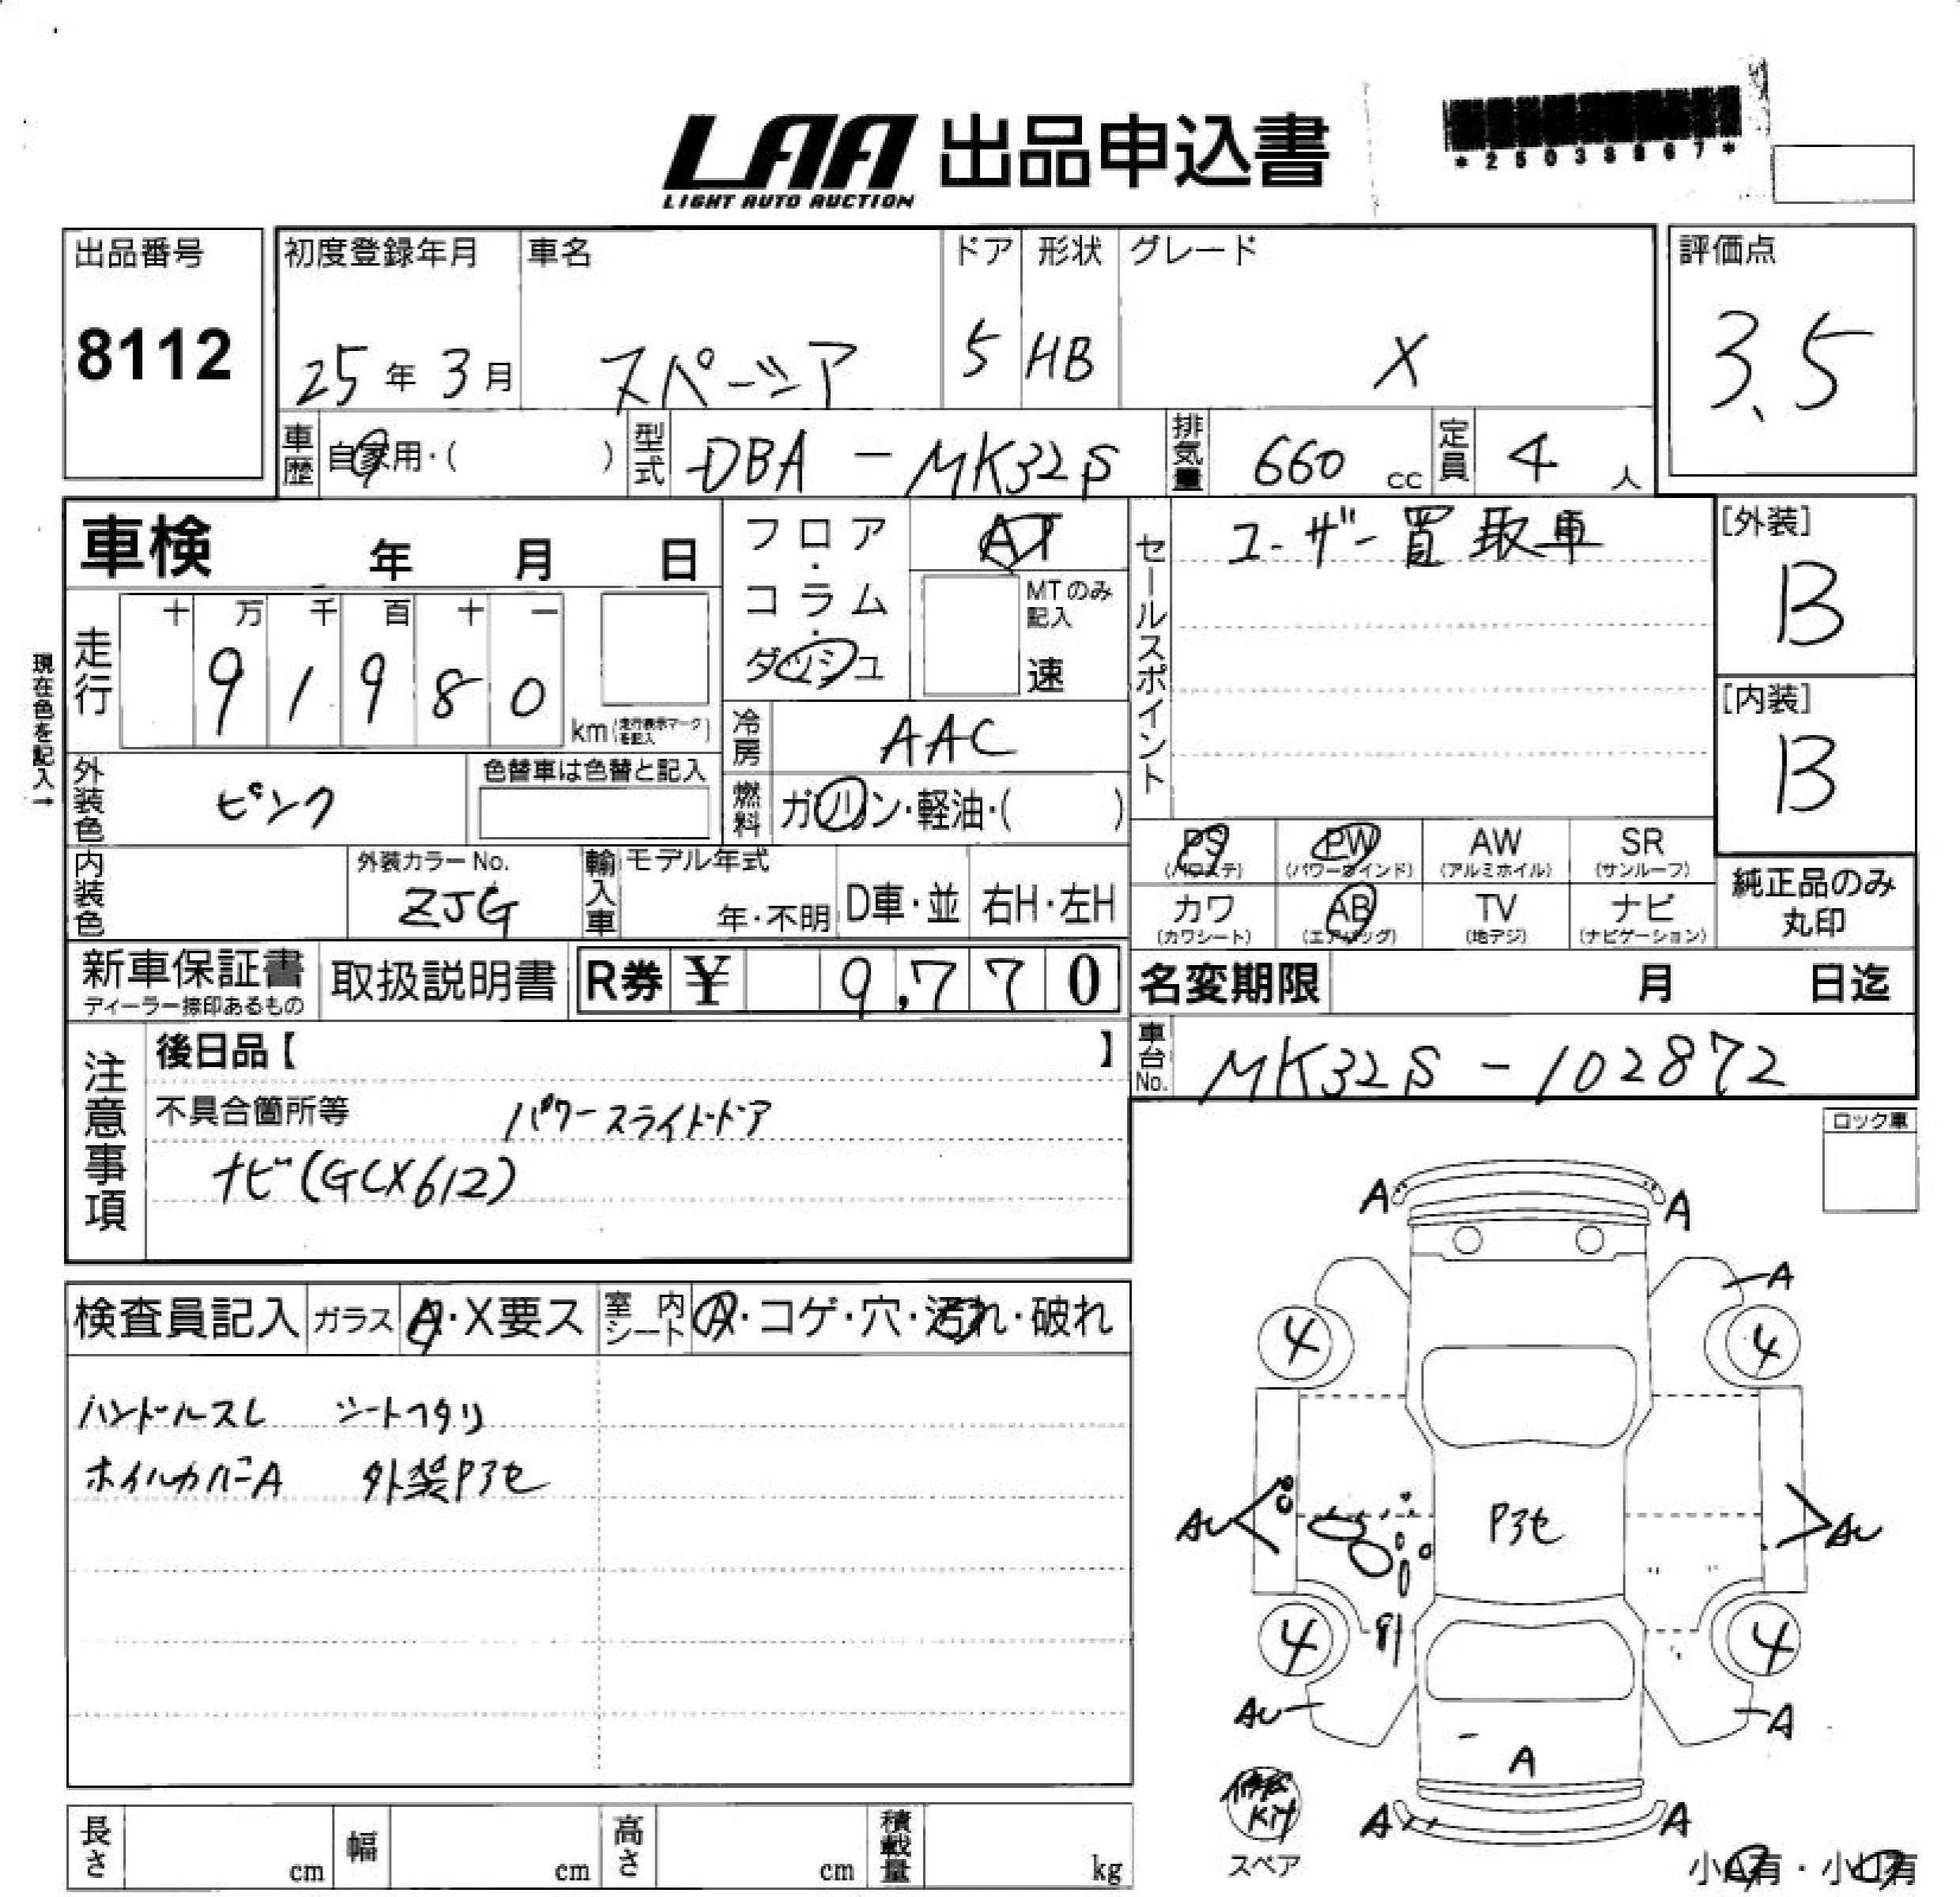 LAA 出品申込書
LIGHT AUTO AUCTION
出品番号
8112
初度登録年月
25年3月
車名
スペーシア
ドア
5
形状
HB
グレード
X
評価点
3.5
車歴
自家用・( )
型式
DBA-MK32S
排気量
660 cc
定員
4 人
車検 年 月 日
現在色を記入→
走行
十 万 千 百 十 一
9 1 9 8 0
km (走行表示マークを記入)
フロア・コラム・ダッシュ
AT
MTのみ記入
速
冷房
AAC
燃料
ガソリン・軽油・( )
外装色
ピンク
色替車は色替と記入
内装色
外装カラーNo.
ZJG
輸入車
モデル年式
年・不明
D車・並
右H・左H
セールスポイント
ユーザー買取車
[外装]
B
[内装]
B
PS (パワステ)
PW (パワーウインド)
AW (アルミホイル)
SR (サンルーフ)
カワ (カワシート)
AB (エアバッグ)
TV (地デジ)
ナビ (ナビゲーション)
純正品のみ
丸印
新車保証書
ディーラー捺印あるもの
取扱説明書
R券 ¥ 9,770
名変期限 月 日迄
車台No.
MK32S-102872
注意事項
後日品【 】
不具合箇所等 パワースライドドア
ナビ(GCX612)
ロック車
検査員記入
ガラス
A・X要ス
室内シート
A・コゲ・穴・汚れ・破れ
ハンドルスレ シートヘタリ
ホイルカバーA 外装P3セ
A A
A
4 4
AU AU
P3セ
4 4
AU A
A
A A
Kit
スペア
小A有・小U有
長さ cm
幅 cm
高さ cm
積載量 kg